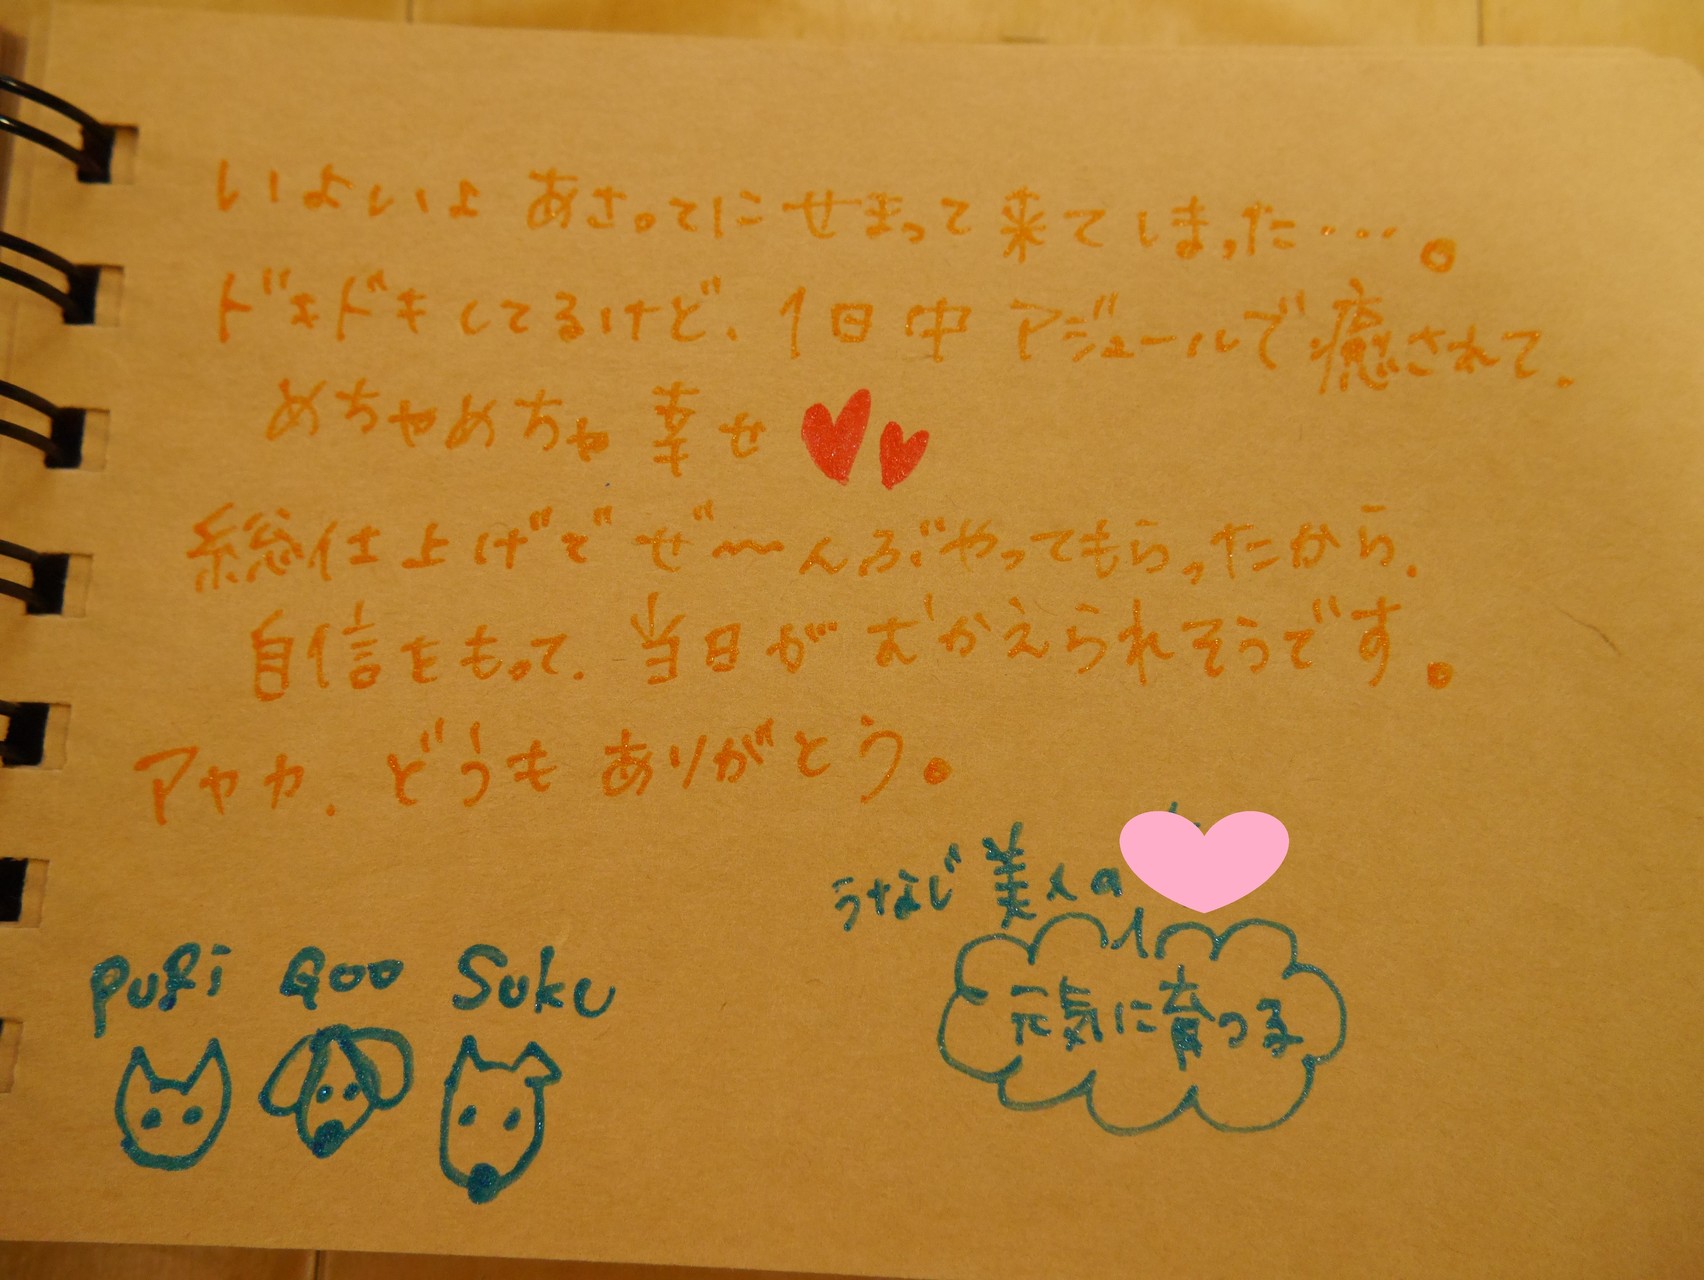 いよいよ あさってに せまって来てしまった…。
ドキドキしてるけど、1日中 アジュールで癒されて、
めちゃめちゃ 幸せ
総仕上げで ぜ〜んぶやってもらったから、
自信をもって、当日が むかえられそうです。
アヤカ、どうも ありがとう。
うなじ 美人の
元気に育つ子
puRi Goo Suku